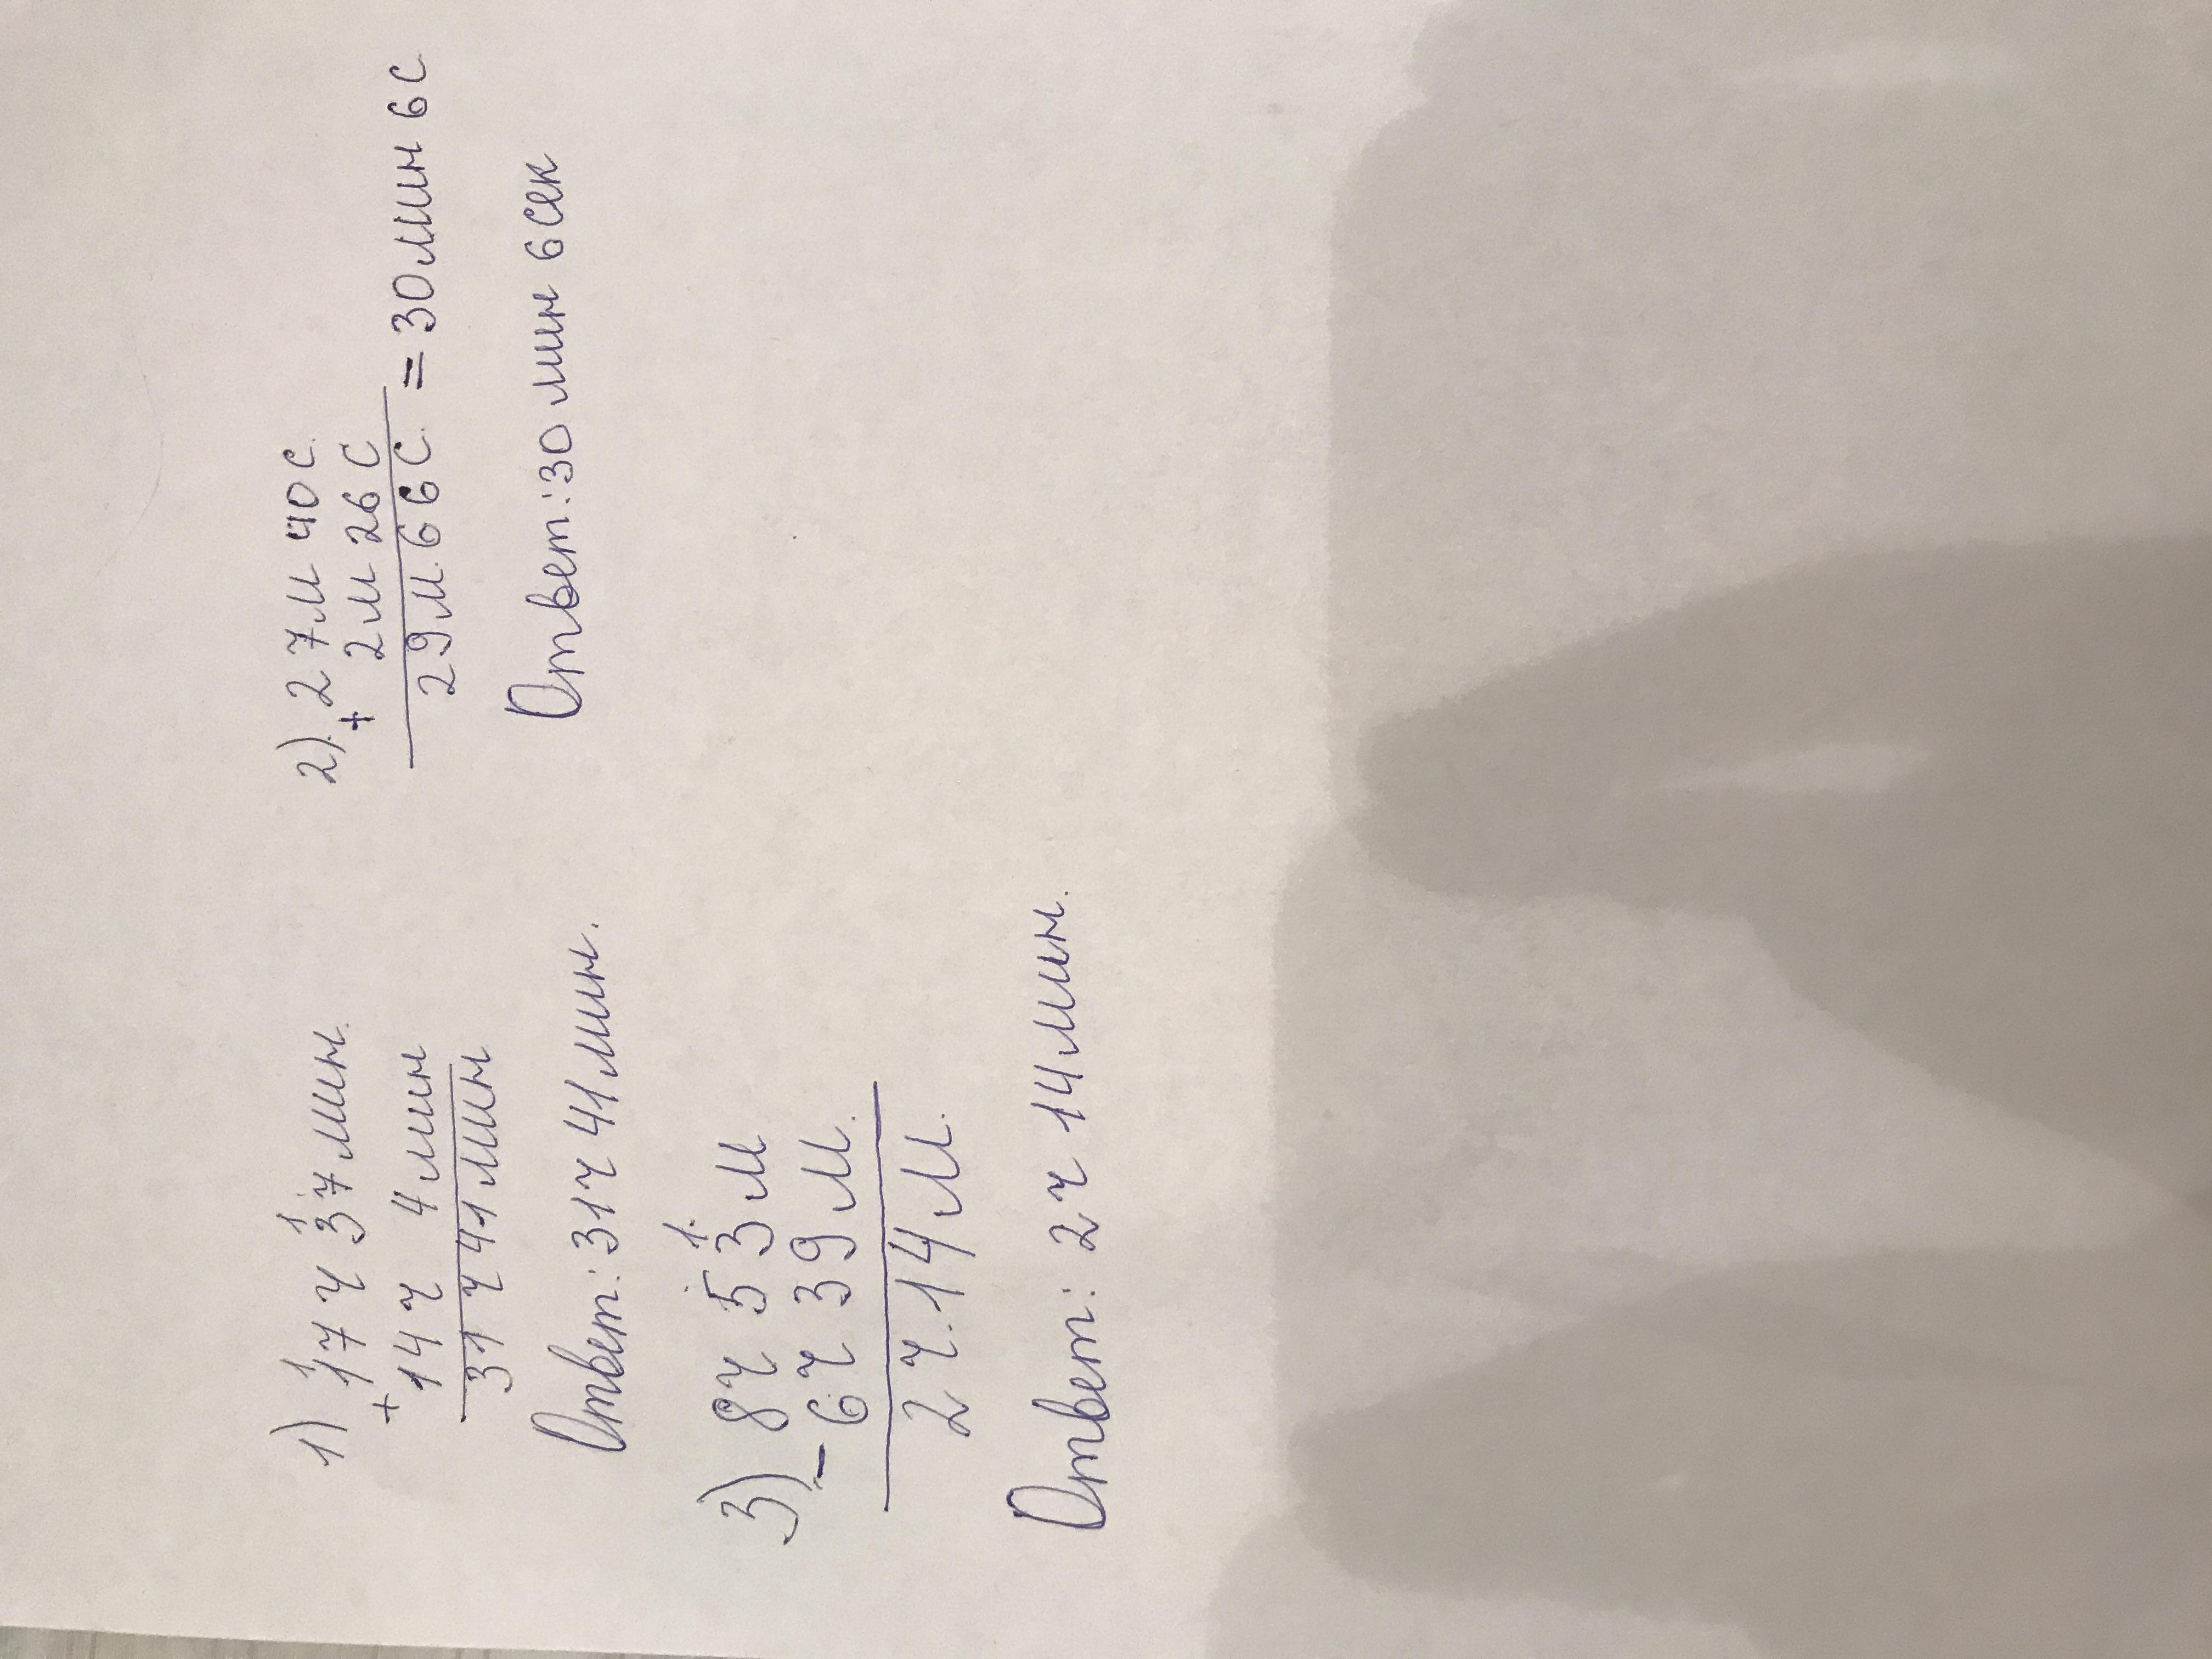 1) 17 ч 37 мин.
+ 14 ч 4 мин
31 ч 41 мин
Ответ: 31 ч 41 мин.
2). 27 м 40 с.
+ 2 м 26 с
29 м. 66 с. = 30 мин 6 с
Ответ: 30 мин 6 сек
3) 8 ч 53 м
- 6 ч 39 м.
2 ч. 14 м.
Ответ: 2 ч 14 мин.